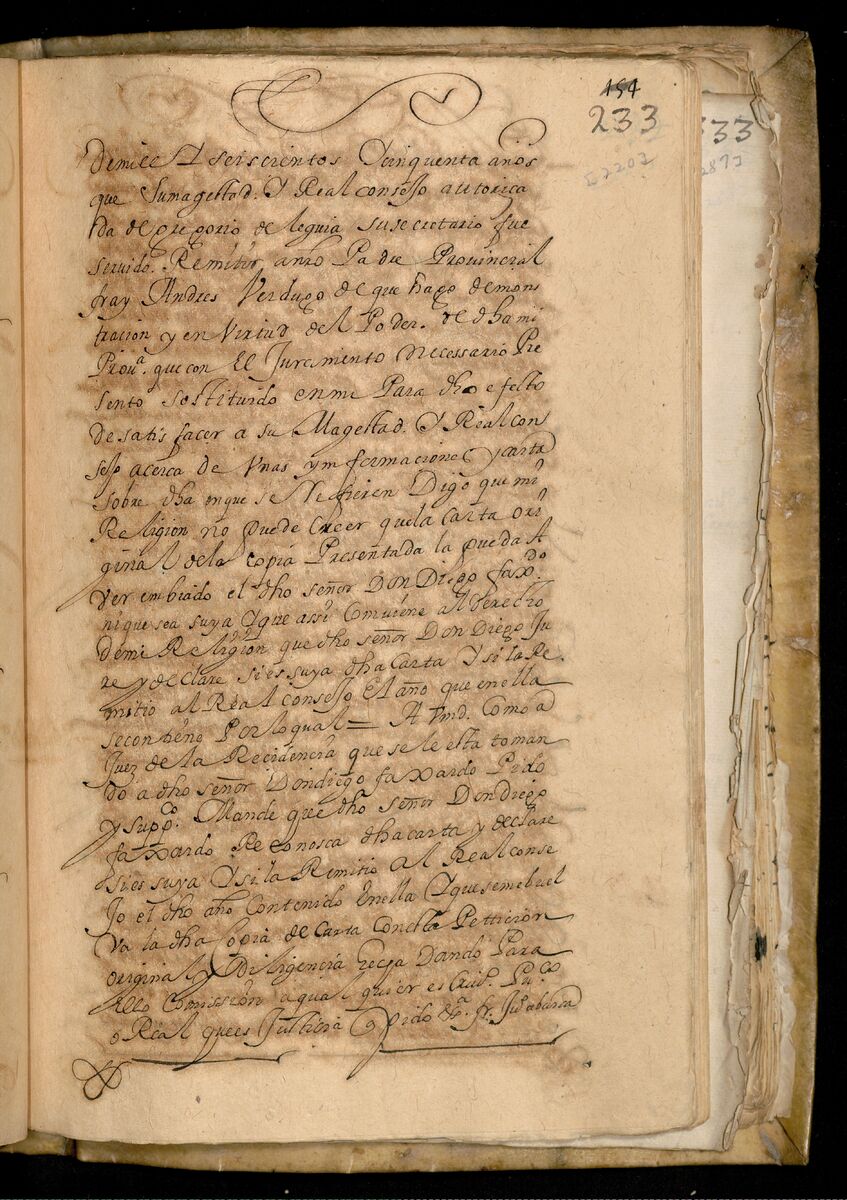 154
233
333
demill Y seiscientos Y cinquenta años
que Sumagestad. Y Real consejo autoriça
da de gregorio de leguia susecretario fue
servido. Remitir anr̃o Padre Provincial
fray Andres Verdugo de que hago demons
tracion y en Virtud del Poder. de dha mi
Prouᵃ. que con El Juramento necessario Pre
sento sostituido en mi Para dho efecto
de satisfacer a su Magestad. Y Real con
sejo acerca de Vnas ynformaciones y carta
sobre dha en que se Refieren Digo que mi
Religion no puede creer quela carta ori
ginal dela copia Presentada la pueda A
ver embiado el dho señor Don Diego faxᵈᵒ.
ni que sea suya Yque assi Conuiene al derecho
demi Religion que dho señor Don Diego Ju
re y declare si es suya dha Carta Y si la Re
mitio al Real consejo El año que enella
secontiene Por loqual = A Vmd. Como a
Juez de la Recidencia que se le esta toman
do a dho señor Dondiego faxardo Pido
y suppᶜᵒ. Mande que dho señor Don diego
faxardo Reconosca dha carta y declare
sies suya Y si la Remitio al Real conse
jo el dho año Contenido Enella Yquesemebuel
va la dha Copia de Carta Conesta Petticion
original y Diligencia hecha Dando Para
ello Comission aqual quier escriuᵒ. Puᶜᵒ
o Real que es Justicia q pido &ᵃ fr. Juᵒ abarca